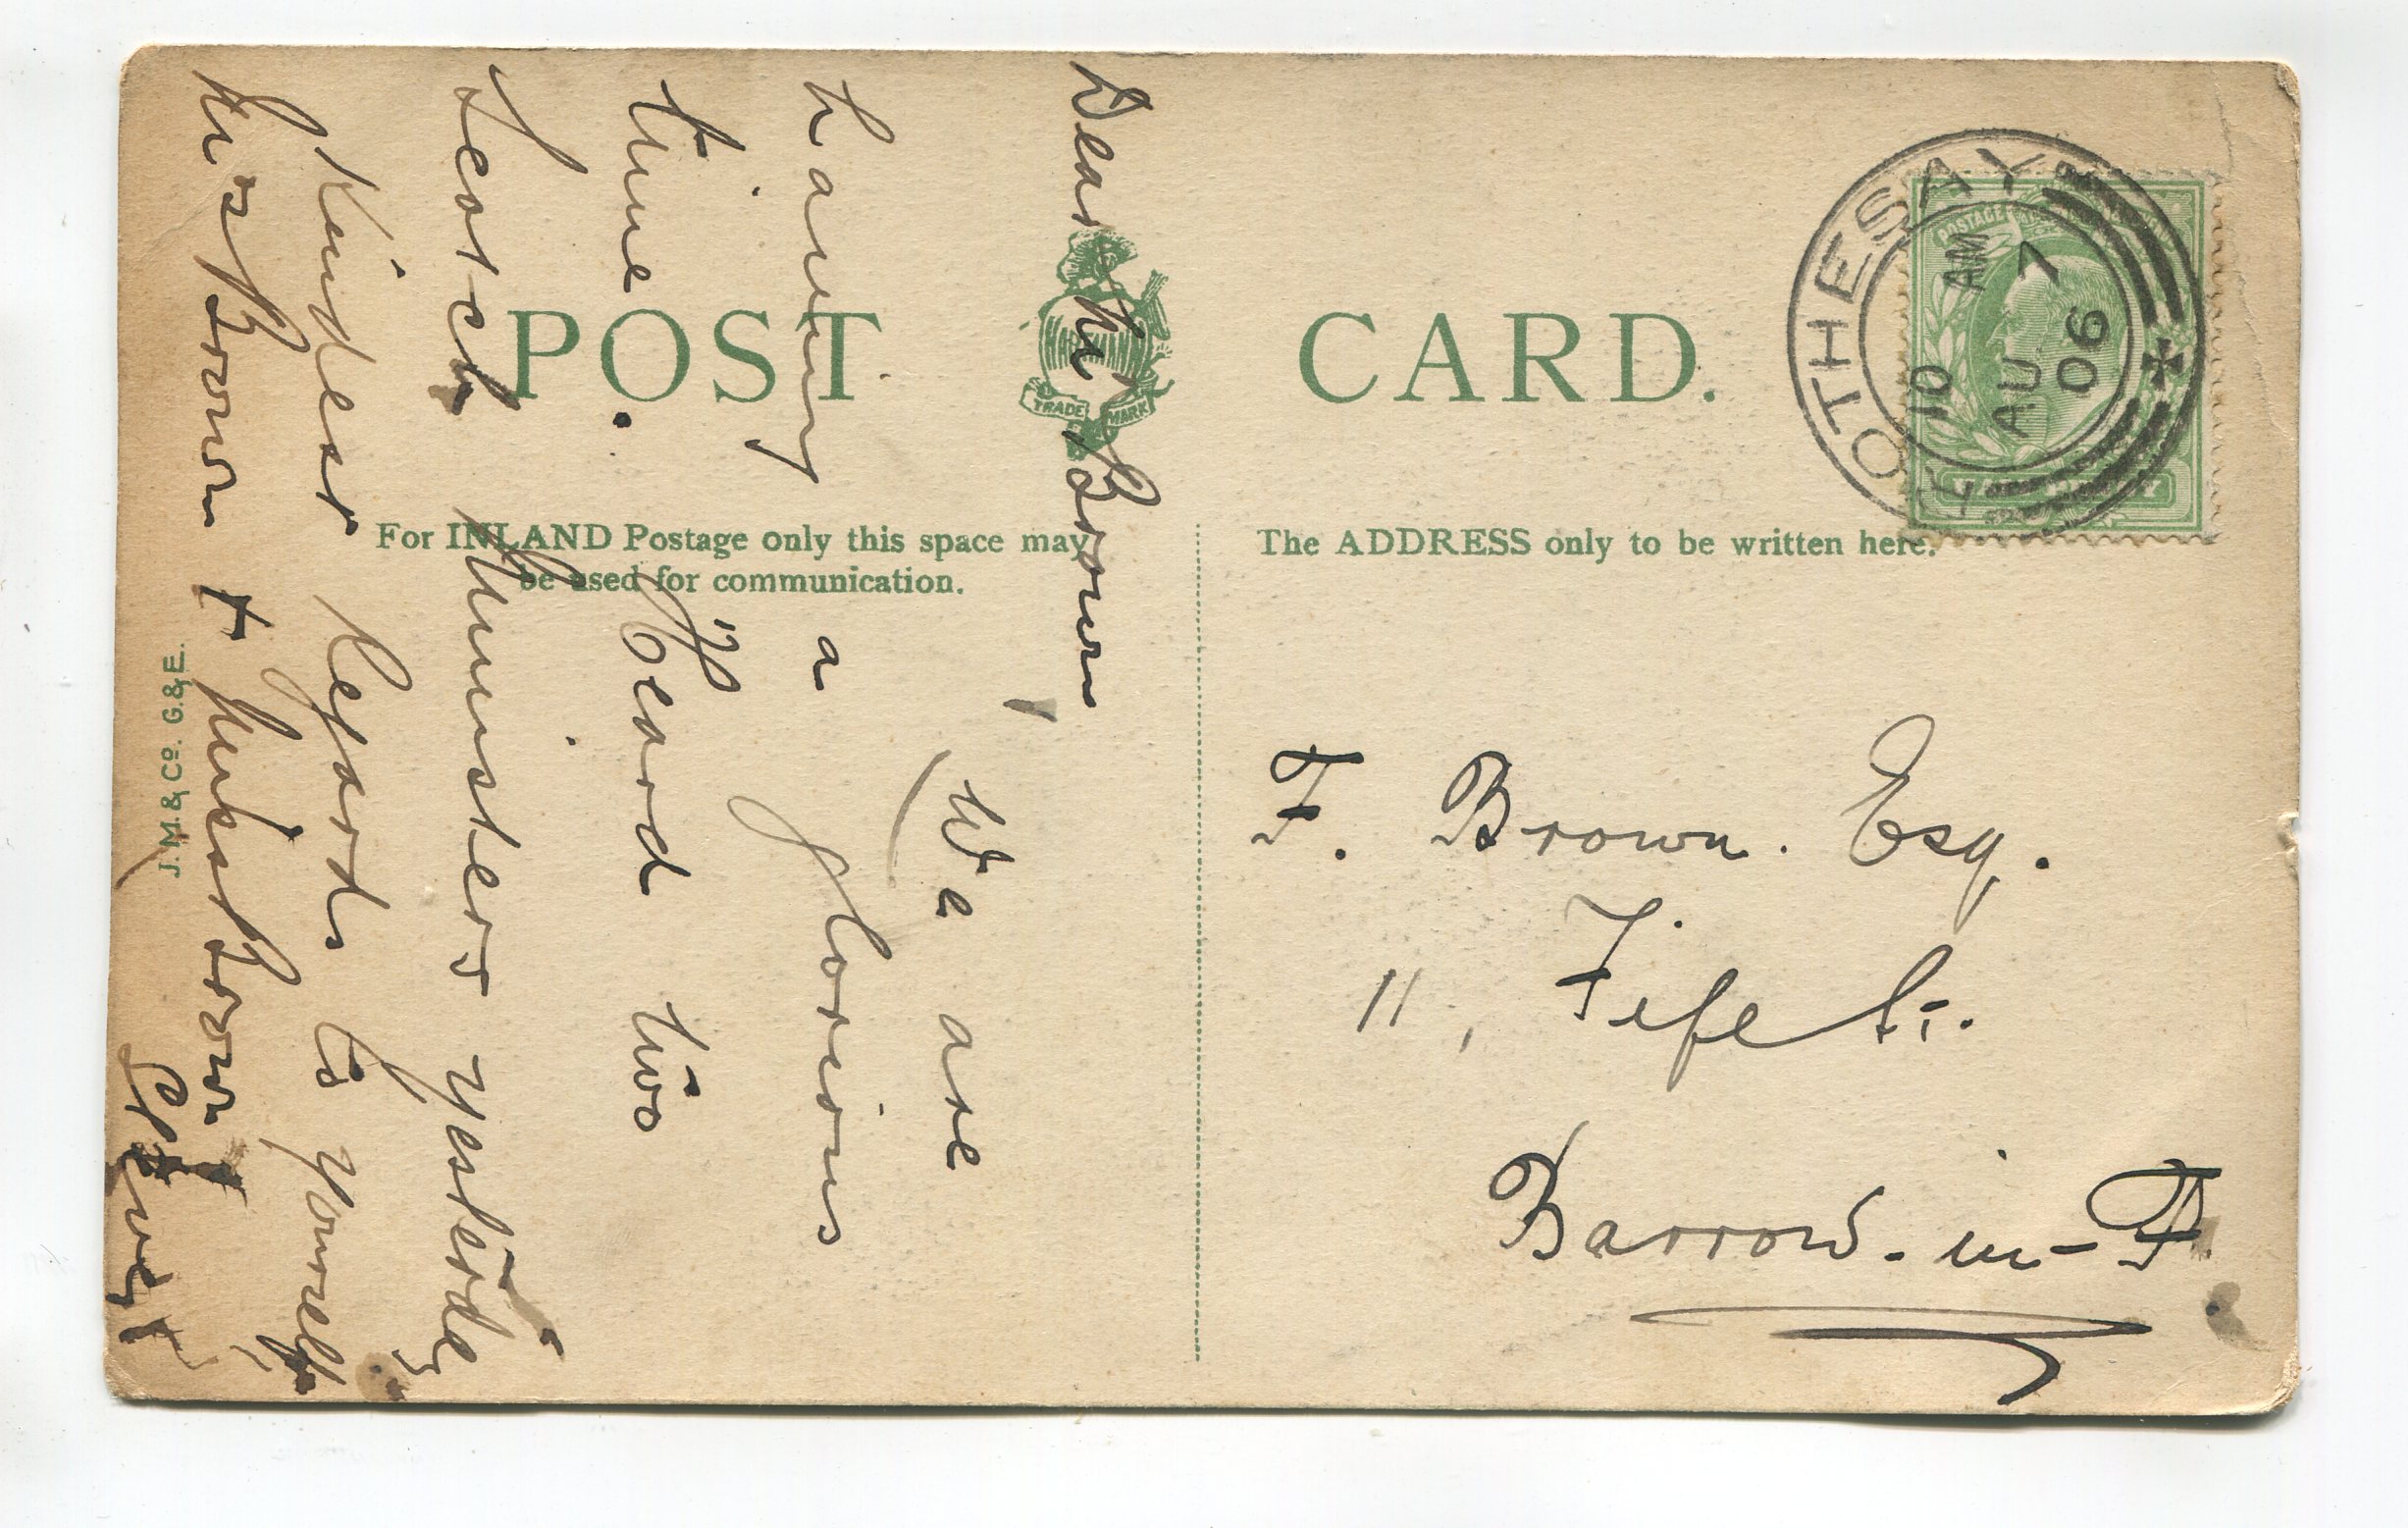 POST CARD.
TRADE MARK
For INLAND Postage only this space may
be used for communication.
The ADDRESS only to be written here.
J.M.& Co. G.& E.
ROTHESAY
10 AM
AU 7
06
POSTAGE
F. Brown. Esq.
11, Fife St.
Barrow-in-F.
Dear Mr Brown
We are
having a glorious
time. Heard two
Scotch Ministers yesterday
Kindest Regards to yourself,
Mrs Brown + Miss Brown